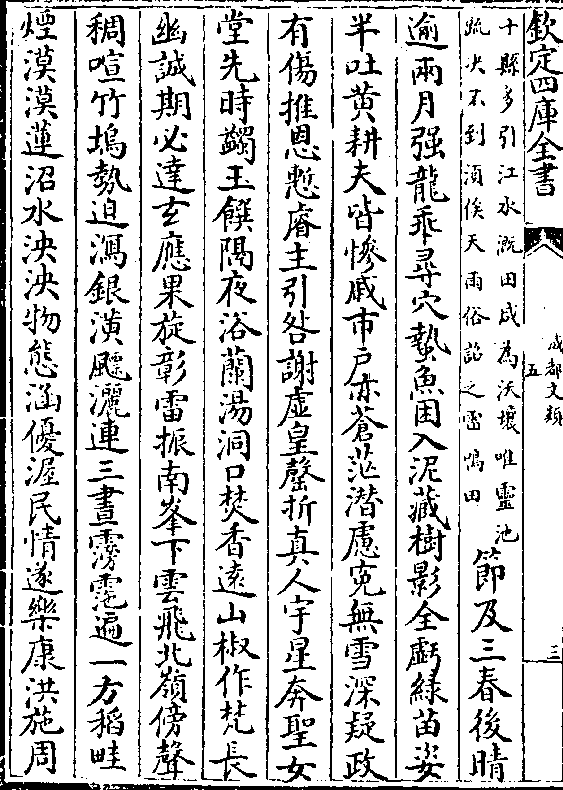 欽定四庫全書
成都文類
五
三
十縣多引江水漑田咸為沃壤唯靈池
疏决不到湏俟天雨俗詺之雷鳴田
節及三春後晴
逾兩月强龍乖尋穴蟄魚困入泥藏樹影全虧緑苗姿
半吐黄耕夫皆慘戚市户亦蒼茫潜慮寃無雪深疑政
有傷推恩慙睿主引咎謝虚皇罄折真人宇星奔聖女
堂先時蠲玉饌隔夜浴蘭湯洞口焚香遠山椒作梵長
幽誠期必達玄應果旋彰雷振南峯下雲飛北嶺傍聲
稠喧竹塢勢迫瀉銀潢飃灑連三晝霶遍一方稻畦
煙漠漠蓮沼水泱泱物態涵優渥民情遂樂康洪施周